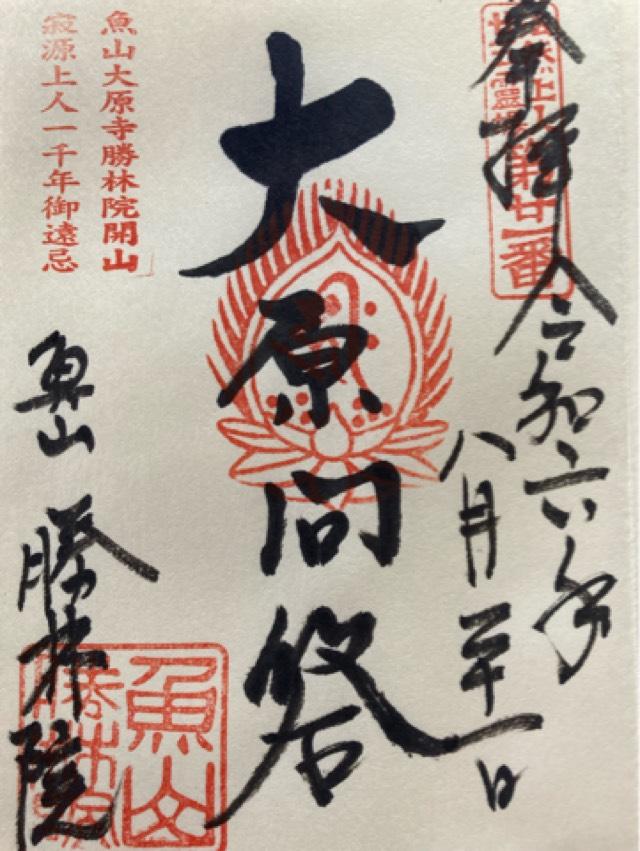 奉拝
令和六年
八月二十一日
第廿一番
大原問答
魚山大原寺勝林院開山
寂源上人一千年御遠忌
魚山 勝林院
魚山
勝林院